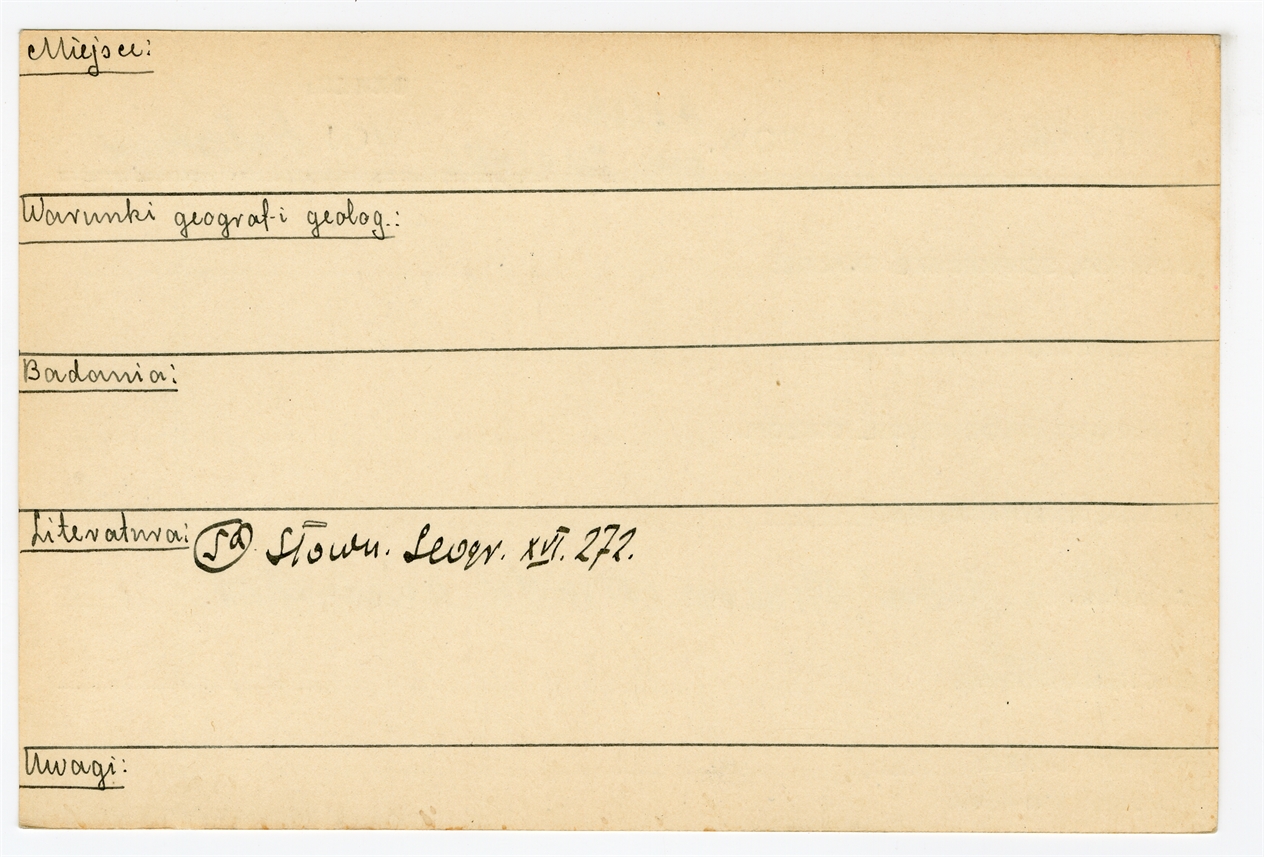 Miejsce:
Warunki geograf-i geolog.:
Badania:
Literatura: Słown. Geogr. XVI. 272.
Uwagi: